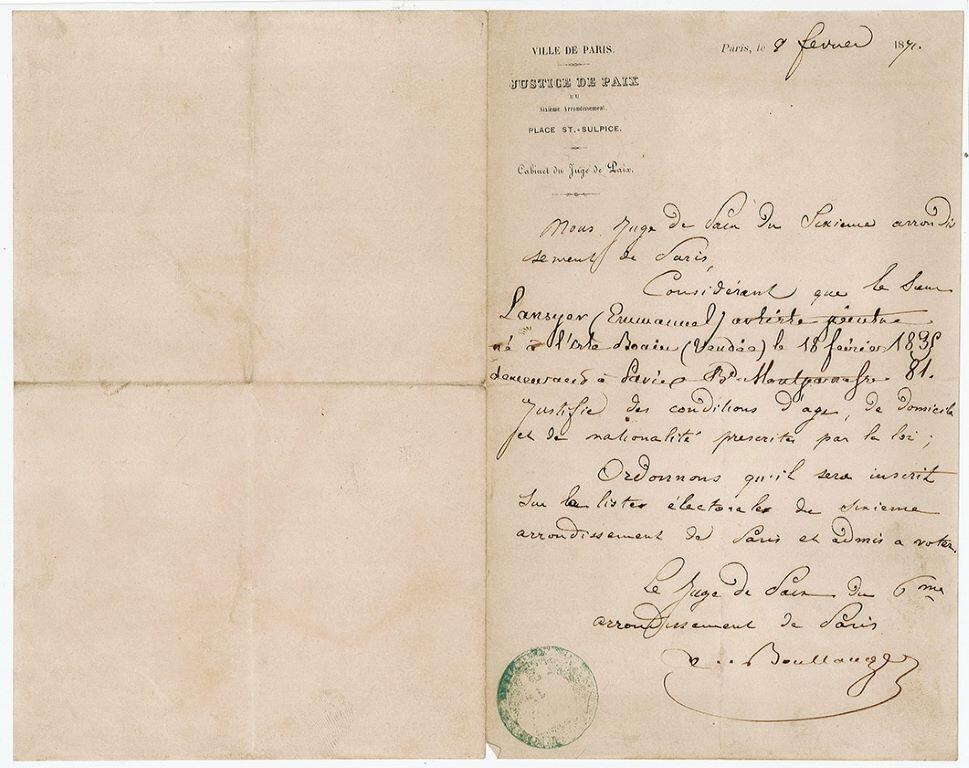 VILLE DE PARIS.
JUSTICE DE PAIX
DU
Sixième Arrondissement.
PLACE ST.-SULPICE.
Cabinet du Juge de Paix.
Paris, le 8 fevrier 1871.
Nous, Juge de Paix du Sixieme arrondis
sement de Paris,
Considérant que le Sieur
Lansyer (Emmanuel) artiste peintre
né à l'isle Bouin (Vendée) le 18 février 1835
demeurant à Paris Bd Montparnasse 81.
Justifie des conditions d'age, de domicile
et de nationalité prescrites par la loi;
Ordonnons qu'il sera inscrit
sur les listes électorales du sixieme
arrondissement de Paris et admis a voter.
Le Juge de Paix du 6me
arrondissement de Paris
Boullange